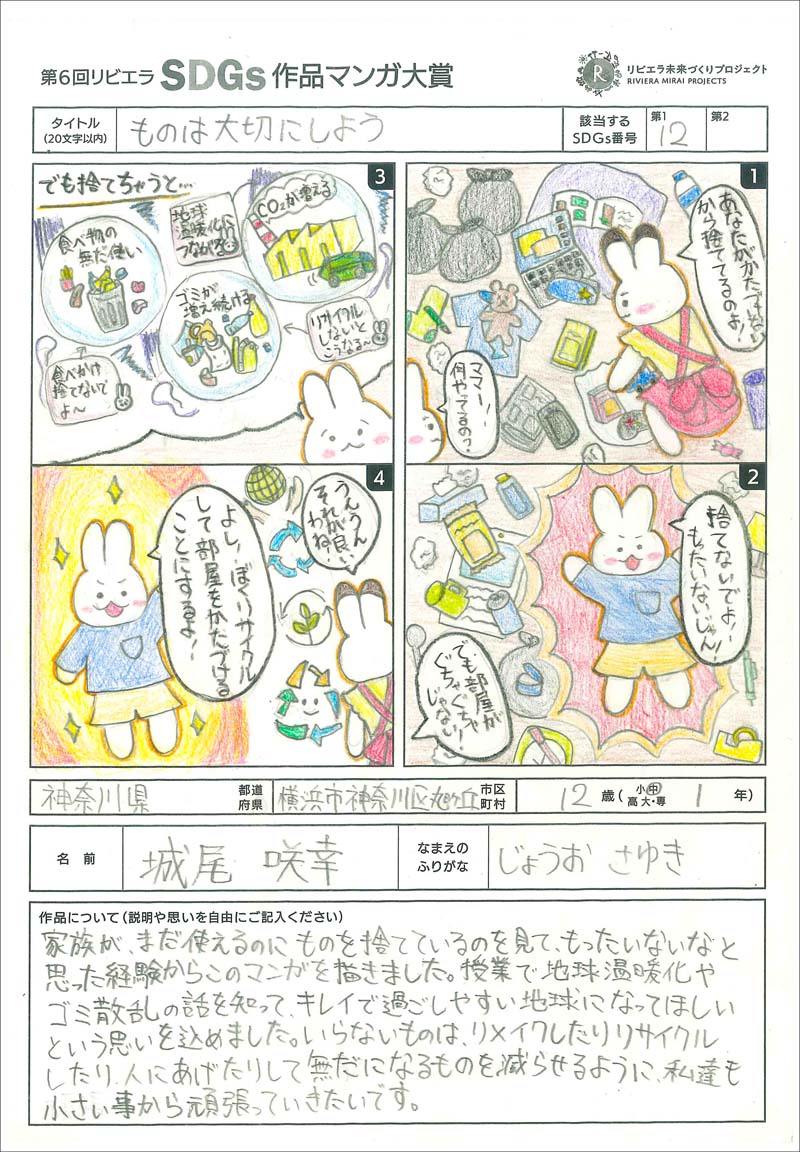 第6回リビエラ SDGs 作品マンガ大賞
リビエラ未来づくりプロジェクト
RIVIERA MIRAI PROJECTS
タイトル
(20文字以内)
ものは大切にしよう
該当する
SDGs番号
第1
12
第2
1
あなたがかたづけない
から捨ててるのよ!
ママー!
何やってるの?
2
捨てないでよ!
もったいないじゃん!
でも部屋が
ぐちゃぐちゃ
じゃない!
3
でも捨てちゃうと…
食べ物の
無だ使い
地球
温暖化に
つながる
CO₂が増える
ゴミが
増え続ける
リサイクル
しないと
こうなる〜
食べかけ
捨てないで
よ〜
4
よし!ぼくリサイクル
して部屋をかたづける
ことにするよ!
うんうん
それが良い
わね
神奈川県
都道
府県
横浜市神奈川区旭ヶ丘
市区
町村
12 歳(小・中・高・大・専 1 年)
名前
城尾 咲幸
なまえの
ふりがな
じょうお さゆき
作品について(説明や思いを自由にご記入ください)
家族が、まだ使えるのにものを捨てているのを見て、もったいないなと
思った経験からこのマンガを描きました。授業で地球温暖化や
ゴミ散乱の話を知って、キレイで過ごしやすい地球になってほしい
という思いを込めました。いらないものは、リメイクしたりリサイクル
したり、人にあげたりして無だになるものを減らせるように、私達も
小さい事から頑張っていきたいです。